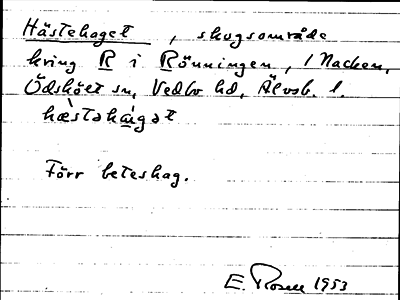 Hästehaget, skogsområde
kring R i Rönningen, 1 Nacken,
Ödskölt sn, Vedbo hd, Älvsb. l.
hæ̀stəhágət
Förr beteshag.
E. Rosell 1953